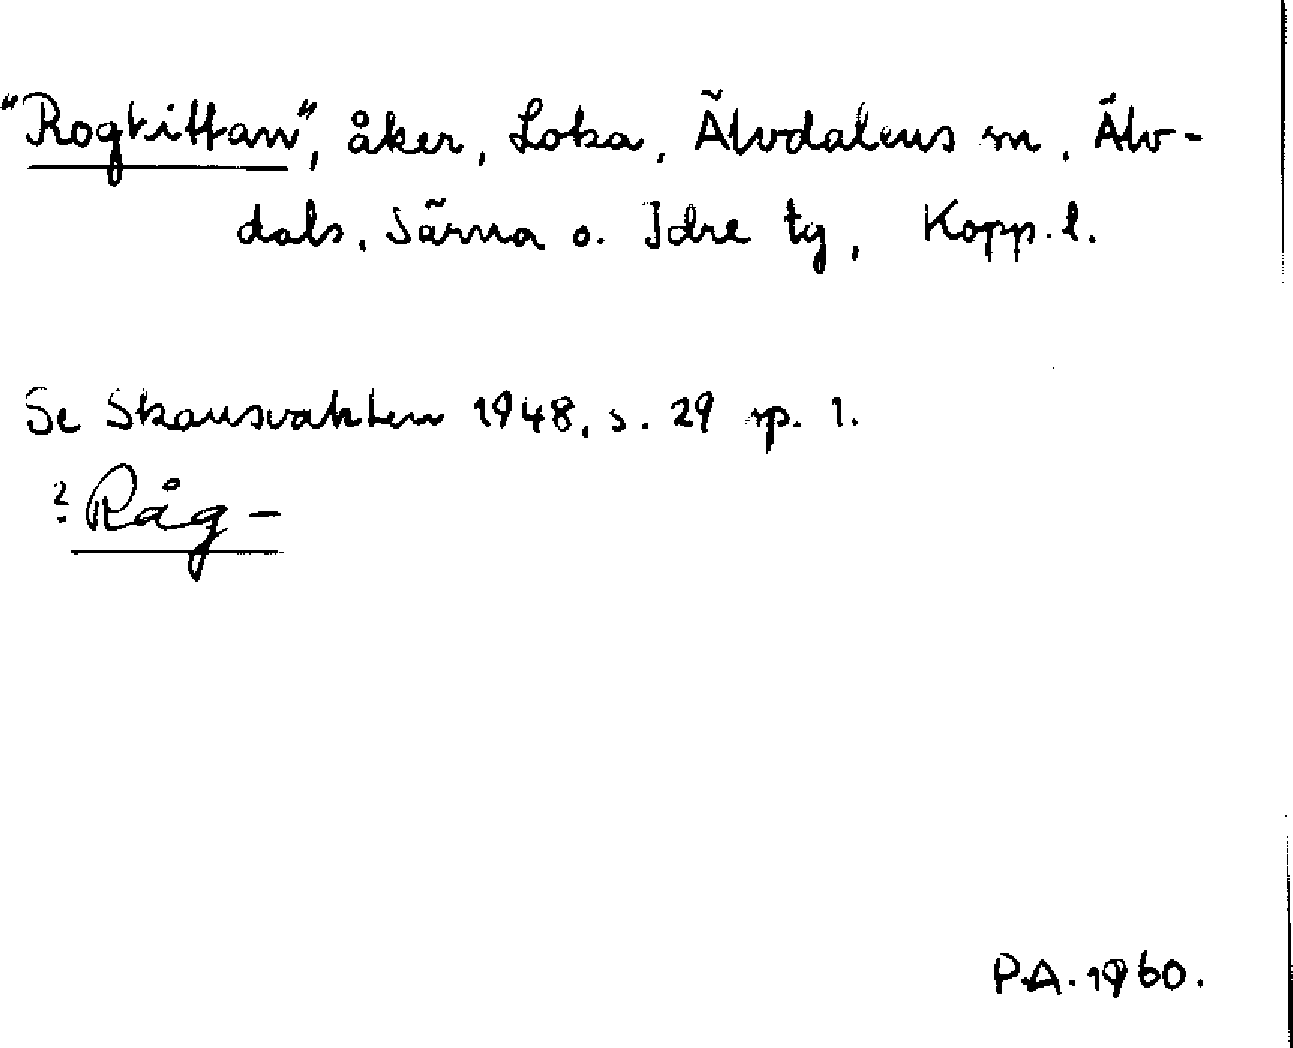 "Rogtittan", åker, Loka, Älvdalens m, Älv-
dals, Särna o. Idre tg, Kopp. l.
Se Skansvakten 1948, s. 29 sp. 1.
? Råg -
P.A. 1960.